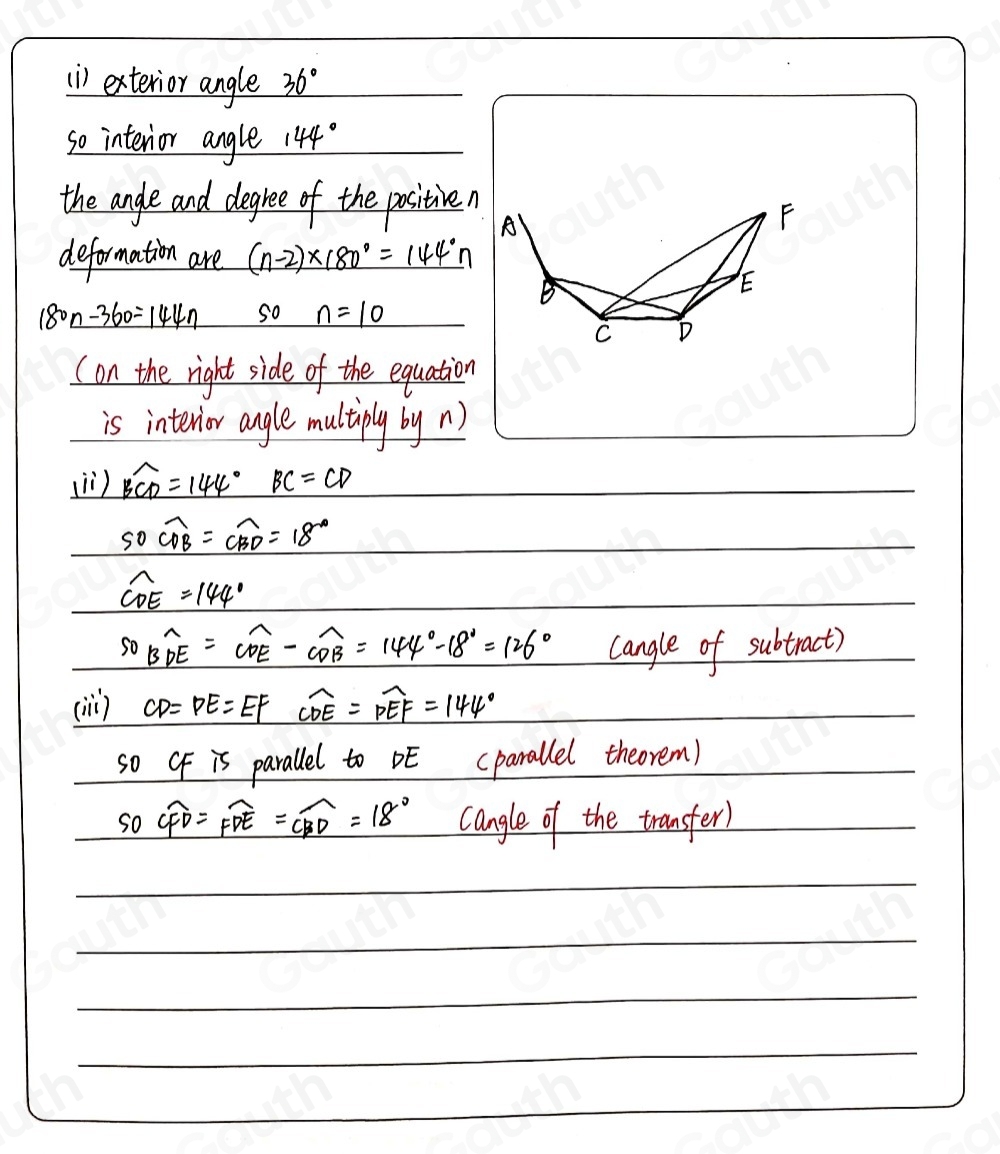 (i) exterior angle 36°
so interior angle 144°
the angle and degree of the positive n
deformation are (n-2)×180° = 144°n
180n-360=144n so n=10
(on the right side of the equation
is interior angle multiply by n)
A
B
C
D
E
F
(ii) B\widehat{C}D = 144° BC = CD
so \widehat{CDB} = \widehat{CBD} = 18°
\widehat{CDE} = 144°
so B\widehat{D}E = \widehat{CDE} - \widehat{CDB} = 144°-18° = 126° (angle of subtract)
(iii) CD= DE= EF \widehat{CDE} = \widehat{DEF} = 144°
so CF is parallel to DE (parallel theorem)
so \widehat{CFD} = \widehat{FDE} = \widehat{CBD} = 18° (angle of the transfer)
Gauth